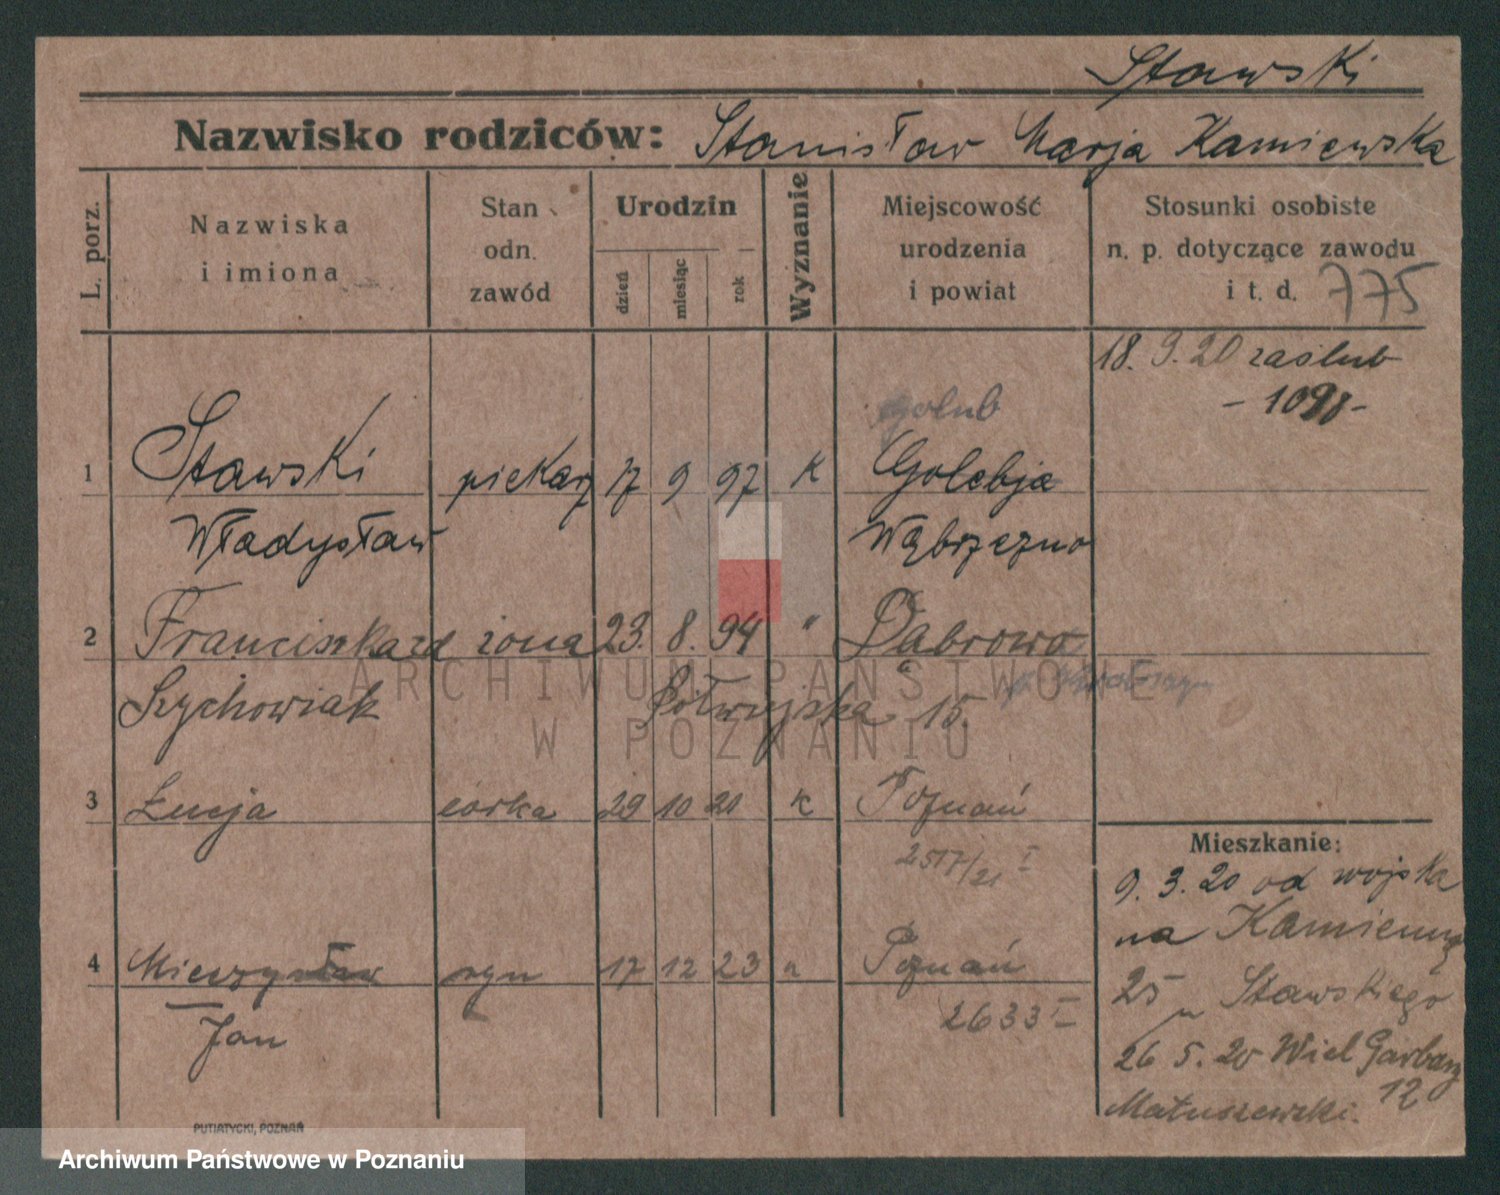 Stawski
Nazwisko rodziców: Stanisław Marja Kamiewska
L. porz.
Nazwiska
i imiona
Stan
odn.
zawód
Urodzin
dzień
miesiąc
rok
Wyznanie
Miejscowość
urodzenia
i powiat
Stosunki osobiste
n. p. dotyczące zawodu
i t. d. 775
18. 9. 20 zaślub
- 1098 -
Golub
1 Stawski piekarz 17 9 97 K Golebja
Władysław Wąbrzezno
2 Franciszka zd żona 23. 8. 94 " Dąbrowa
Szychowiak 15.
3 Łucja córka 29 10 20 k Poznań
2517/21 I
4 Mieczysław syn 17 12 23 " Poznań
Jan 2633 I
Mieszkanie:
9. 3. 20 od wojska
na Kamienną
25 u Stawskiego
26 5. 20 Wiel Garbary
12
Matuszewski.
PUTIATYCKI, POZNAŃ
ARCHIWUM PAŃSTWOWE
W POZNANIU
Archiwum Państwowe w Poznaniu